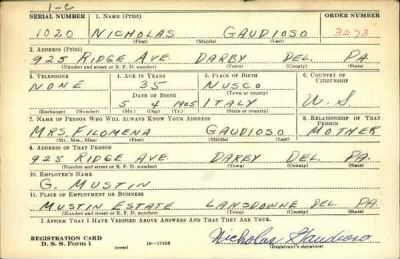 1-C
SERIAL NUMBER 1. NAME (Print) ORDER NUMBER
1020 NICHOLAS GAUDIOSO 3273
(First) (Middle) (Last)
2. ADDRESS (Print)
925 RIDGE AVE. DARBY DEL. PA.
(Number and street or R. F. D. number) (Town) (County) (State)
3. TELEPHONE 4. AGE IN YEARS 5. PLACE OF BIRTH 6. COUNTRY OF CITIZENSHIP
NONE 35 NUSCO
DATE OF BIRTH
5 4 1905 ITALY U.S.
(Exchange) (Number) (Mo.) (Day) (Yr.) (State or country)
7. NAME OF PERSON WHO WILL ALWAYS KNOW YOUR ADDRESS 8. RELATIONSHIP OF THAT PERSON
MRS. FILOMENA GAUDIOSO MOTHER
(Mr., Mrs., Miss) (First) (Middle) (Last)
9. ADDRESS OF THAT PERSON
925 RIDGE AVE DARBY DEL. PA.
(Number and street or R. F. D. number) (Town) (County) (State)
10. EMPLOYER'S NAME
G. MUSTIN
11. PLACE OF EMPLOYMENT OR BUSINESS
MUSTIN ESTATE LANSDOWNE DEL. PA.
(Number and street or R. F. D. number) (Town) (County) (State)
I AFFIRM THAT I HAVE VERIFIED ABOVE ANSWERS AND THAT THEY ARE TRUE.
REGISTRATION CARD
D. S. S. Form 1 (over) 16-17105 Nicholas Gaudioso
(Registrant's signature)